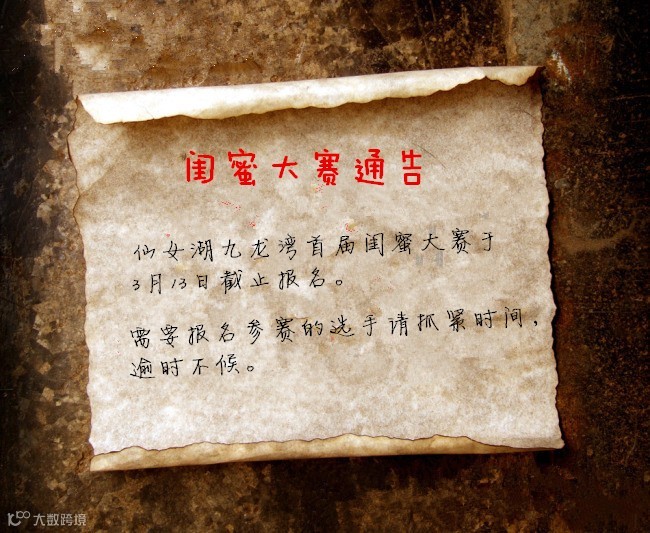 闺蜜大赛通告
仙女湖九龙湾首届闺蜜大赛于
3月13日截止报名。
需要报名参赛的选手请抓紧时间，
逾时不候。
大数跨境